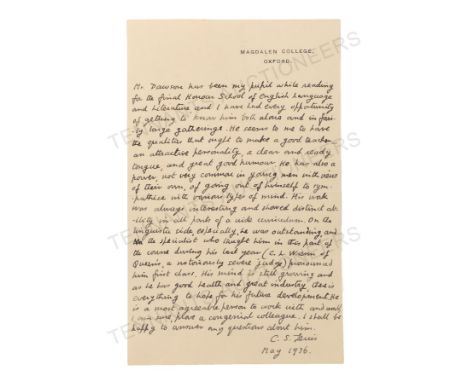 MAGDALEN COLLEGE,
OXFORD.
Mr. Dawson has been my pupil while reading
for the Final Honour School of English Language
and Literature and I have had every opportunity
of getting to know him both alone and in fair-
ly large gatherings. He seems to me to have
the qualities that ought to make a good teacher:
an attractive personality, a clear and ready
tongue, and great good humour. He has also a
power, not very common in young men with views
of their own, of going out of himself to sym-
pathise with various types of mind. His work
was always interesting and showed distinct ab-
ility in all parts of a wide curriculum. On the
linguistic side, especially, he was outstanding and
the specialist who taught him in this part of
the course during his last year (C. L. Wrenn of
Queen's, a notoriously severe judge) pronounced
him first class. His mind is still growing and
as he has good health and great industry there is
everything to hope for his future development. He
is a most agreeable person to work with and would,
I am sure, prove a congenial colleague. I shall be
happy to answer any questions about him.
C. S. Lewis
May 1936.